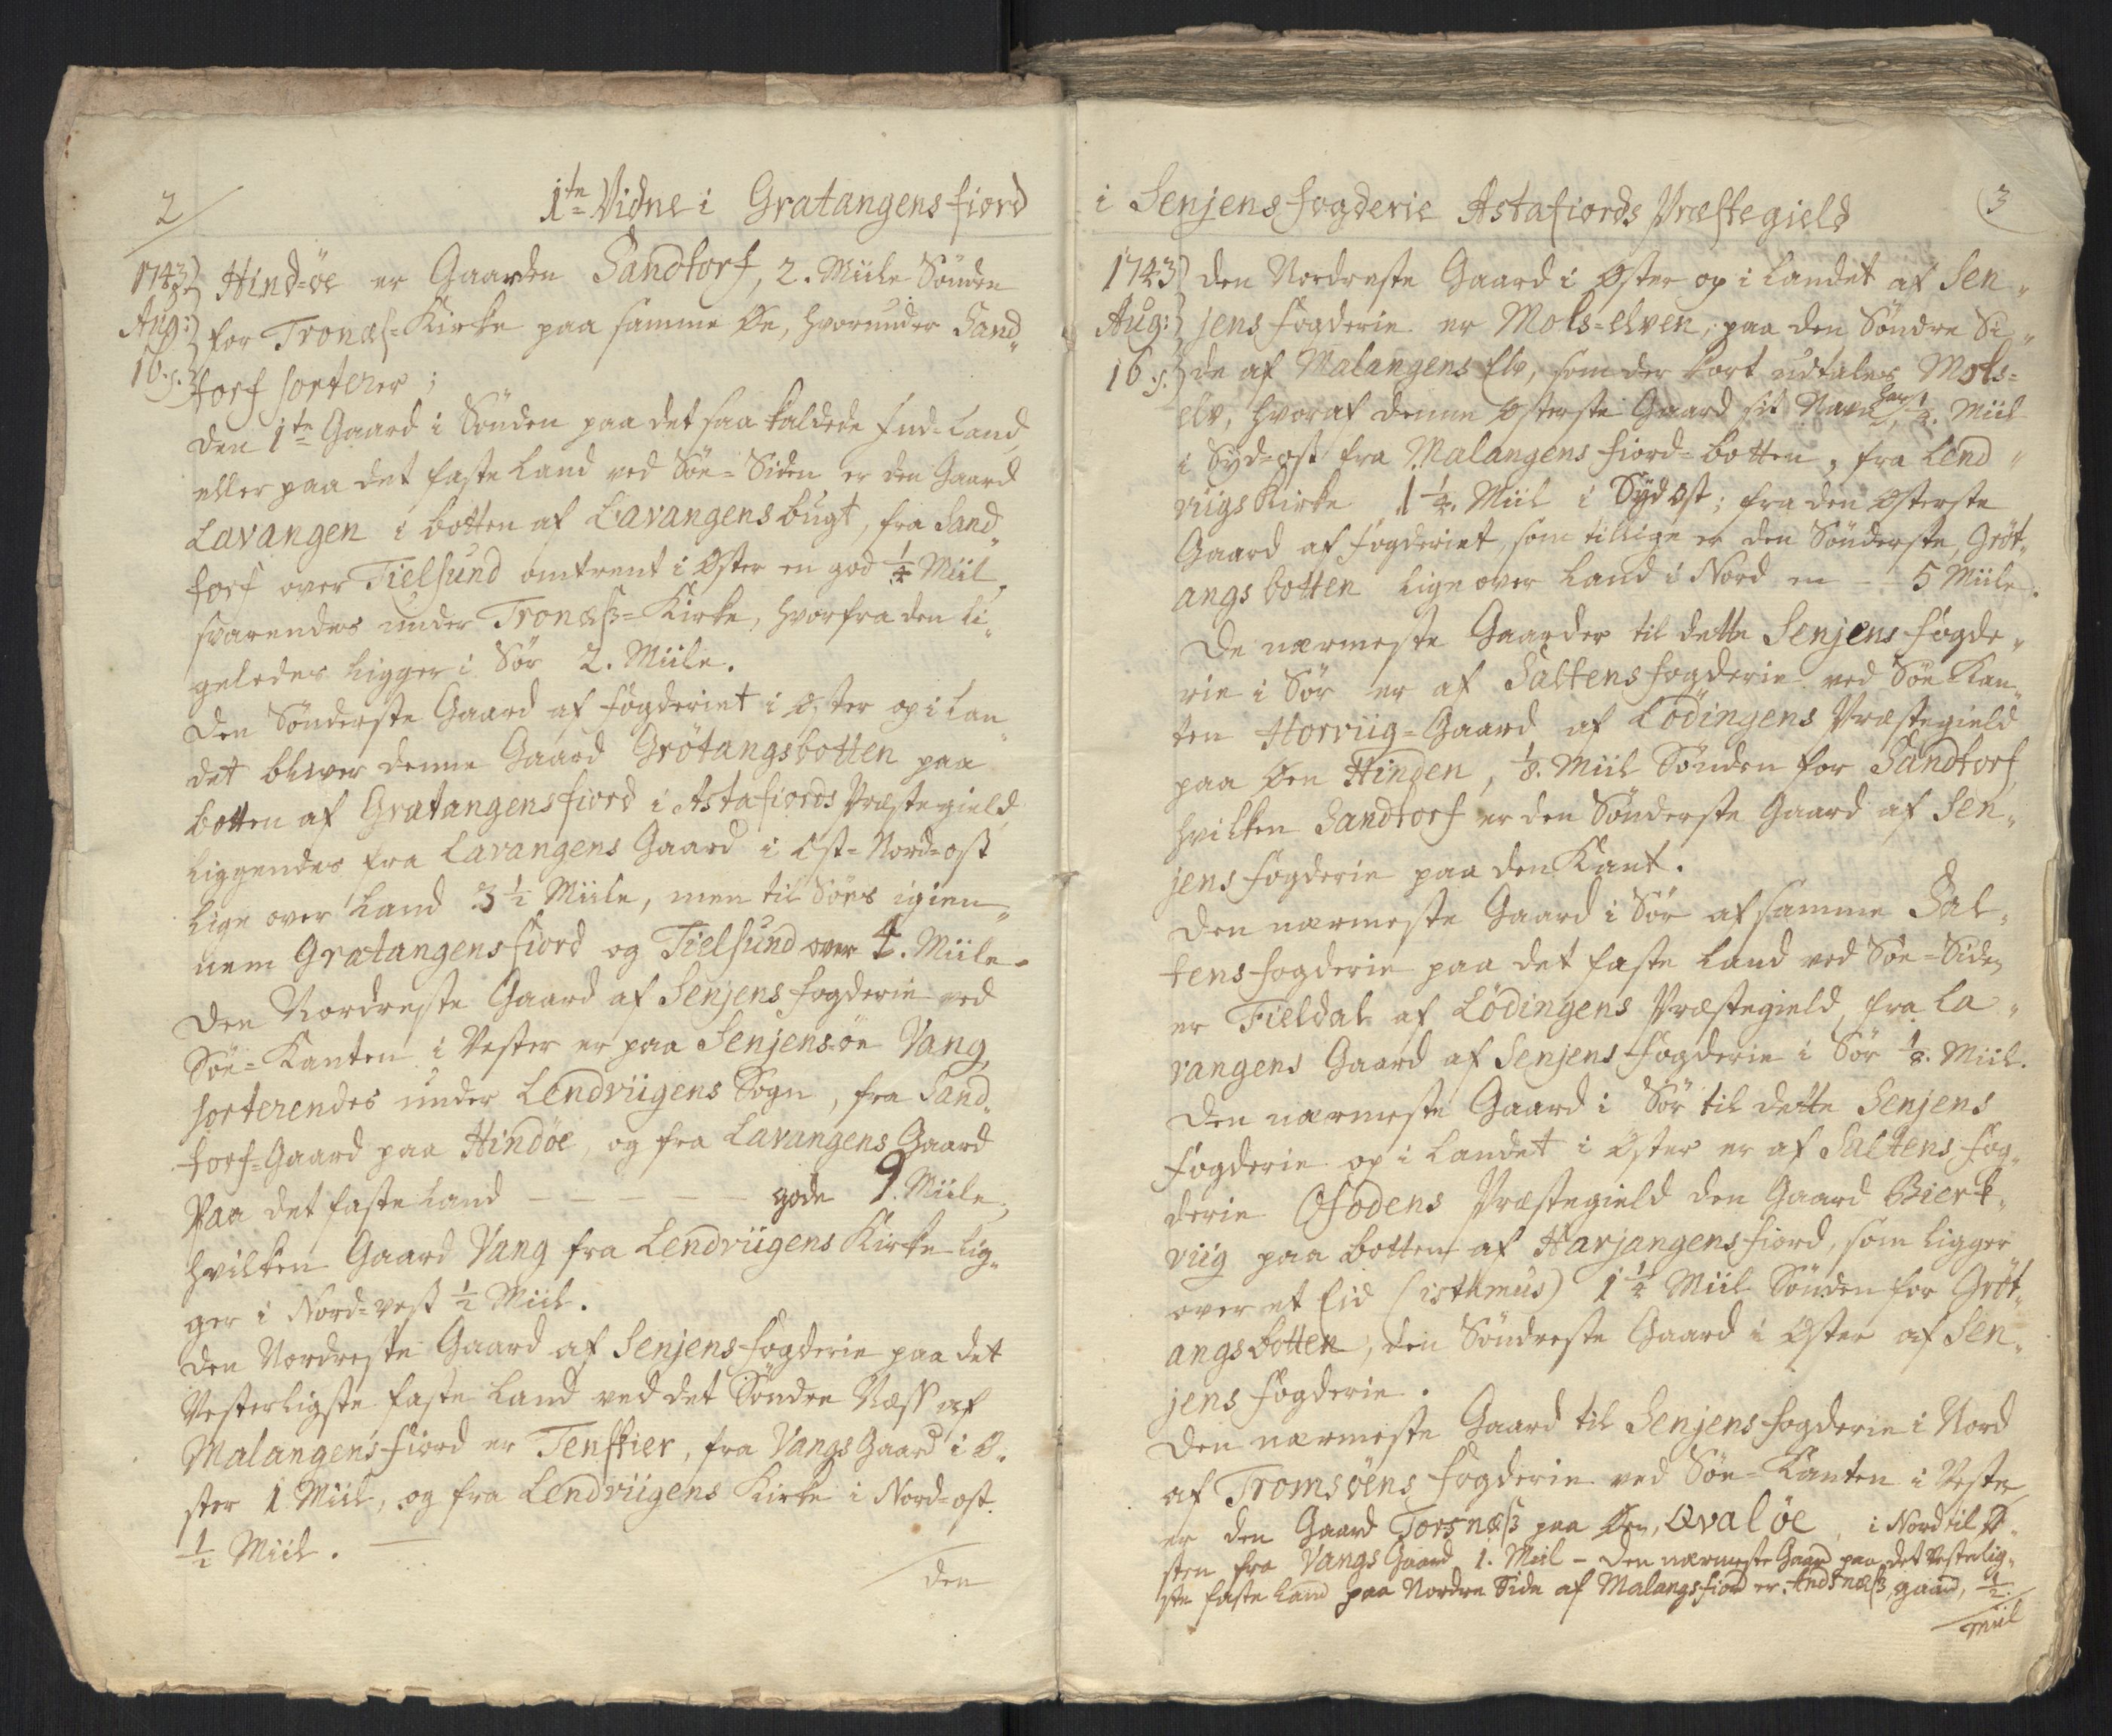 2
1te Vidne i Gratangens fiord
1743
Aug:
16. s.
Hind=öe er Gaarden Sandtorf, 2. Miile Sønden
for Tronæs=Kirke paa samme Øe, hvorunder Sand„
torf sorterer;
Den 1te Gaard i Sønden paa det saa kaldede Ind=Land
eller paa det faste Land ved Søe=Siden er den Gaard
Lavangen i botten af Lavangens bugt, fra Sand„
torf over Tielsund omtrent i Øster en god 1/4 Miil,
svarendes under Tronæs=Kirke, hvorfra den li„
geledes ligger i Sør 2. Miile.
Den Sønderste Gaard af fogderiet i Øster op i Lan„
det bliver denne Gaard Grötangsbotten paa
botten af Gratangens fiord i Astafiords Præstegield
liggendes fra Lavangens Gaard i Ost=Nord=ost
lige over Land 3 1/2 Miile, men til Søes igien„
nem Gratangens fiord og Tielsund over 4. Miile.
Den Nordreste Gaard af Senjens fogderie ved
Søe=Kanten i Vester er paa Senjens=øe Vang,
sorterendes under Lendviigens Sogn, fra Sand„
torf=Gaard paa Hindöe, og fra Lavangens Gaard
Paa det faste Land — — — — — gode 9. Miile,
hvilken Gaard Vang fra Lendviigens Kirke lig„
ger i Nord=vest 1/2 Miil.
Den Nordreste Gaard af Senjens fogderie paa det
Vesterligste faste Land ved det Söndre Næss af
Malangens fiord er Tenskier, fra Vangs Gaard i Ø„
ster 1 Miil, og fra Lendviigens Kirke i Nord=ost
1/2 Miil. —
den
i Senjens fogderie Astafiords Præstegield
3
1743
Aug:
16. s.
Den Nordreste Gaard i Øster op i Landet af Sen„
jens fogderie er Mols=elven, paa den Söndre Si„
de af Malangens Elv, som der kort udtales Mols=
elv, hvoraf denne Østerste Gaard sit Navn har, 1/4. Miil
i Syd=ost fra Malangens fiord=botten, fra Lend„
viigs Kirke 1 1/4. Miil i Sydost; fra den Østerste
Gaard af fogderiet, som tillige er den Sønderste, Gröt„
angs botten lige over Land i Nord en — 5 Miile.
De nærmeste Gaarder til dette Senjens fogde„
rie i Sør er af Saltens fogderie ved Søe Kan„
ten Horviig=Gaard af Lödingens Præstegield
paa Øen Hinden, 1/8. Miil Sønden for Sandtorf,
hvilken Sandtorf er den Sønderste Gaard af Sen„
jens fogderie paa den Kant.
Den nærmeste Gaard i Sør af samme Sal„
tens fogderie paa det faste Land ved Søe=Siden
er Fieldal af Lödingens Præstegield, fra La„
vangens Gaard af Senjens fogderie i Sør 1/8. Miil.
Den nærmeste Gaard i Sør til dette Senjens
fogderie op i Landet i Øster er af Saltens fog„
derie Ofodens Præstegield den Gaard Bierk„
viig paa botten af Harjangens fiord, som ligger
over et Eid (isthmus) 1 1/4 Miil Sønden for Gröt„
angsbotten, den Söndreste Gaard i Øster af Sen„
jens fogderie.
Den nærmeste Gaard til Senjens fogderie i Nord
af Tromsöens fogderie ved Søe=Kanten i Vester
er den Gaard Torsnæss paa Øen, Qvalöe, i Nord til Ø„
sten fra Vangs Gaard 1. Miil — Den nærmeste Gaard paa det Vesterlig„
ste faste Land paa Nordre Side af Malangsfiord er Andsnæss gaard, 1/2
Miil